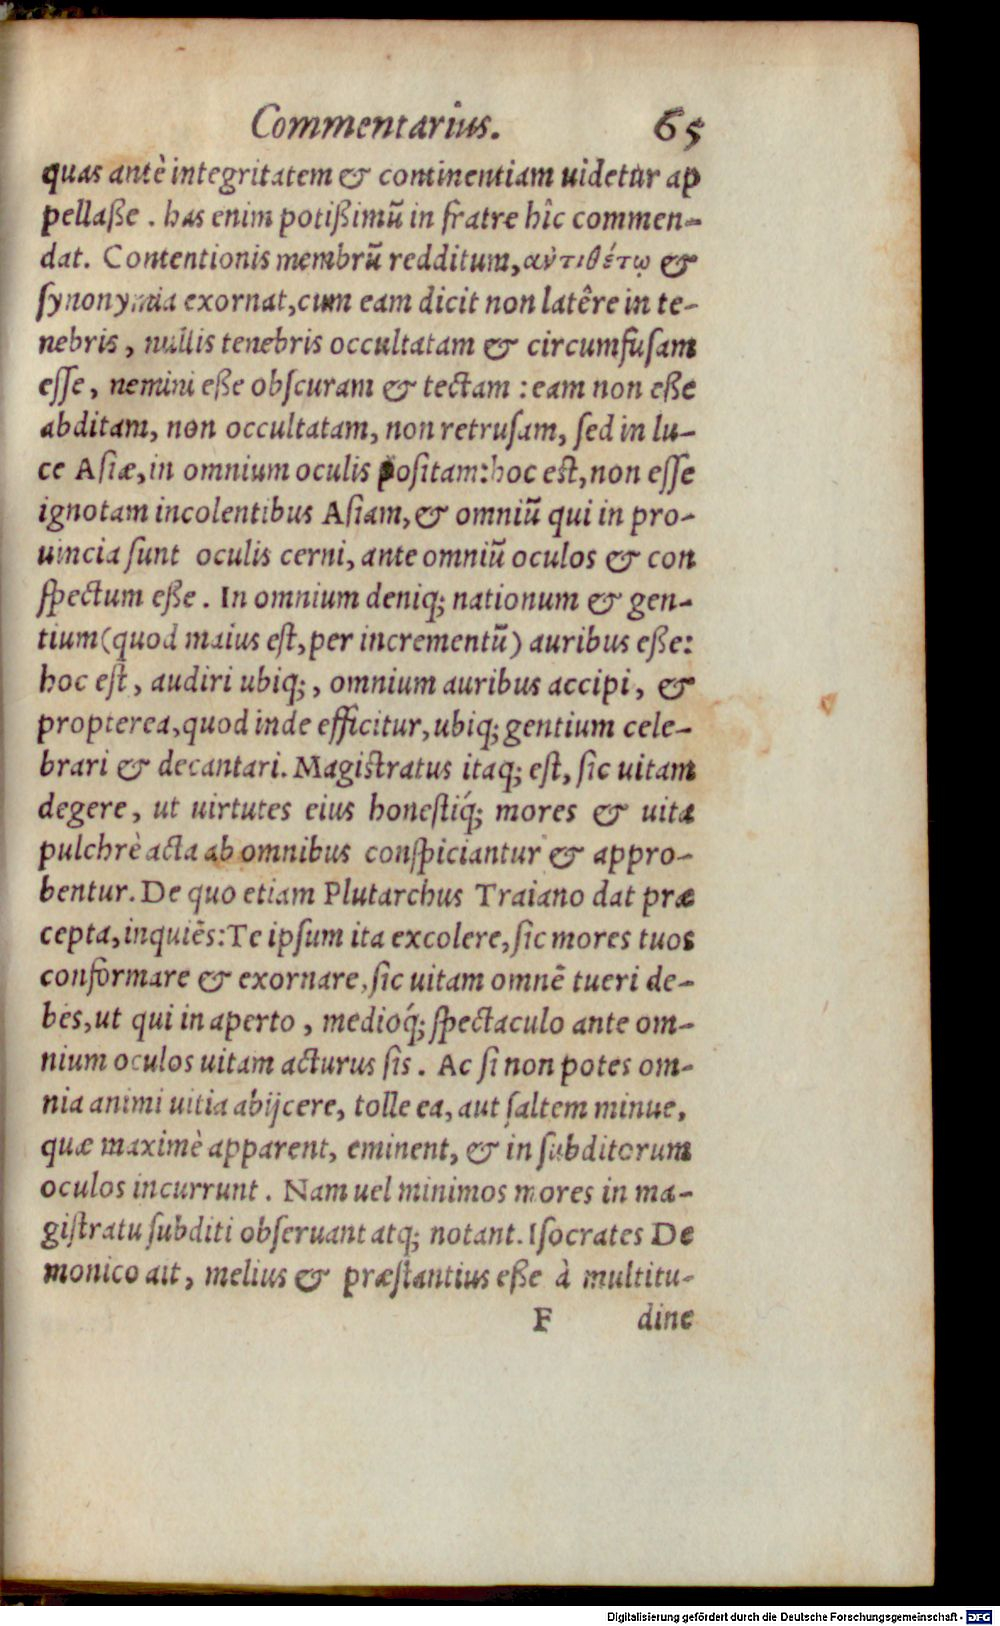 Commentarius. 65
quas antè integritatem & continentiam uidetur ap
pellaße . has enim potißimũ in fratre hîc commen-
dat. Contentionis membrũ redditum, αντιθέτῳ &
ſynonymia exornat, cum eam dicit non latêre in te-
nebris , nullis tenebris occultatam & circumfuſam
eſſe , nemini eße obſcuram & tectam : eam non eße
abditam, non occultatam, non retruſam, ſed in lu-
ce Aſiæ, in omnium oculis poſitam: hoc eſt, non eſſe
ignotam incolentibus Aſiam, & omniũ qui in pro-
uincia ſunt oculis cerni, ante omniũ oculos & con
ſpectum eße . In omnium deniq; nationum & gen-
tium (quod maius eſt, per incrementũ) auribus eße:
hoc eſt , audiri ubiq; , omnium auribus accipi , &
propterea, quod inde efficitur, ubiq; gentium cele-
brari & decantari. Magiſtratus itaq; eſt, ſic uitam
degere , ut uirtutes eius honeſtiq́; mores & uita
pulchrè acta ab omnibus conſpiciantur & appro-
bentur. De quo etiam Plutarchus Traiano dat præ
cepta, inquiẽs: Te ipſum ita excolere, ſic mores tuos
conformare & exornare, ſic uitam omnẽ tueri de-
bes, ut qui in aperto , medioq́; ſpectaculo ante om-
nium oculos uitam acturus ſis . Ac ſi non potes om-
nia animi uitia abijcere, tolle ea, aut ſaltem minue,
quæ maximè apparent, eminent, & in ſubditorum
oculos incurrunt . Nam uel minimos mores in ma-
giſtratu ſubditi obſeruant atq; notant. Iſocrates De
monico ait , melius & præſtantius eße à multitu-
F dine
Digitalisierung gefördert durch die Deutsche Forschungsgemeinschaft - DFG